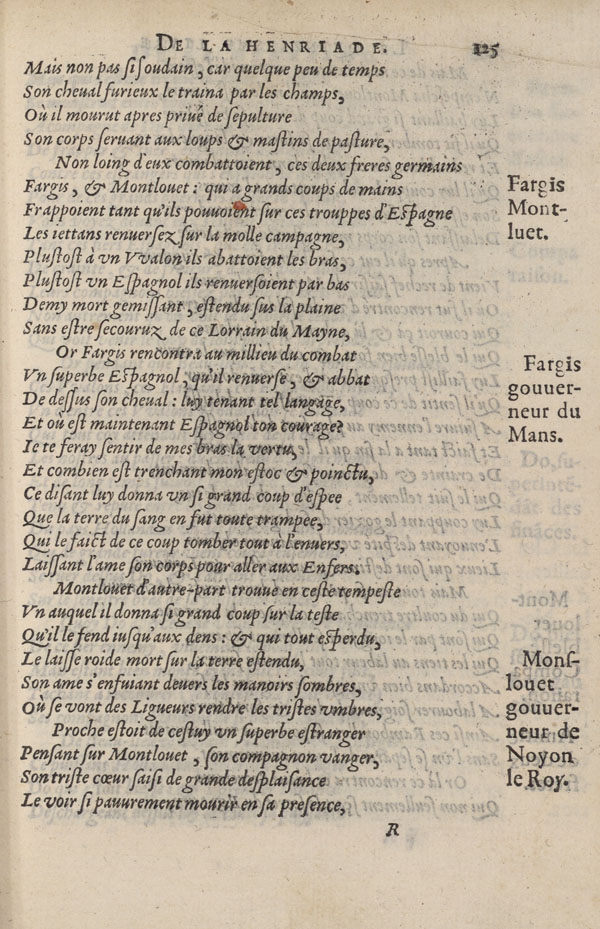 DE LA HENRIADE. 125
Mais non pas si soudain, car quelque peu de temps
Son cheual furieux le traina par les champs,
Où il mourut apres priué de sepulture
Son corps seruant aux loups & mastins de pasture,
Non loing d'eux combattoient, ces deux freres germains
Fargis, & Montlouet : qui a grands coups de mains
Frappoient tant qu'ils pouuoient sur ces trouppes d'Espagne
Les iettans renuersez sur la molle campagne,
Plustost à vn Vvalon ils abattoient les bras,
Plustost vn Espagnol ils renuersoient par bas
Demy mort gemissant, estendu sus la plaine
Sans estre secouruz de ce Lorrain du Mayne,
Or Fargis rencontra au millieu du combat
Vn superbe Espagnol, qu'il renuerse, & abbat
De dessus son cheual : luy tenant tel langage,
Et où est maintenant Espagnol ton courage?
Ie te feray sentir de mes bras la vertu,
Et combien est trenchant mon estoc & poinctu,
Ce disant luy donna vn si grand coup d'espee
Que la terre du sang en fut toute trampee,
Qui le faict de ce coup tomber tout à l'enuers,
Laissant l'ame son corps pour aller aux Enfers.
Montlouet d'autre-part trouue en ceste tempeste
Vn auquel il donna si grand coup sur la teste
Qu'il le fend iusqu'aux dens : & qui tout esperdu,
Le laisse roide mort sur la terre estendu,
Son ame s'enfuiant deuers les manoirs sombres,
Où se vont des Ligueurs rendre les tristes vmbres,
Proche estoit de cestuy vn superbe estranger
Pensant sur Montlouet, son compagnon vanger,
Son triste cœur saisi de grande desplaisance
Le voir si pauurement mourir en sa presence,
R
Fargis
Mont-
luet.
Fargis
gouuer-
neur du
Mans.
Mons-
louet
gouuer-
neur de
Noyon
le Roy.